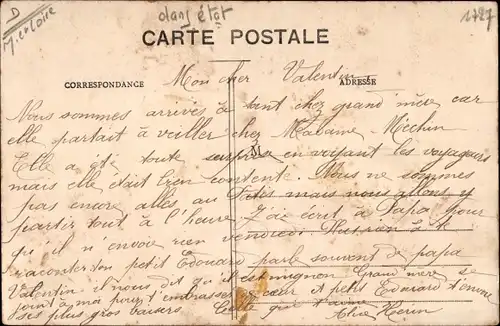 D
M. et Loire
dans état
1727
CARTE POSTALE
CORRESPONDANCE
ADRESSE
Mon cher Valentin
Nous sommes arrivés à tant chez grand'mère car
elle partait à veiller chez Madame Méchin
Elle a été toute surprise en voyant les voyageurs
mais elle était bien contente. Nous ne sommes
pas encore allés au mais nous allons y
partir tout à l'heure. J'ai écrit à Papa pour
qu'il n'envoie rien vendredi
raconter ton petit Edouard parle souvent de papa
Valentin il nous dit qu'il est mignon Grand'mère se
joint à moi pour t'embrasser de cœur et petit Edouard t'envoie
ses plus gros baisers. Celle qui t'aime